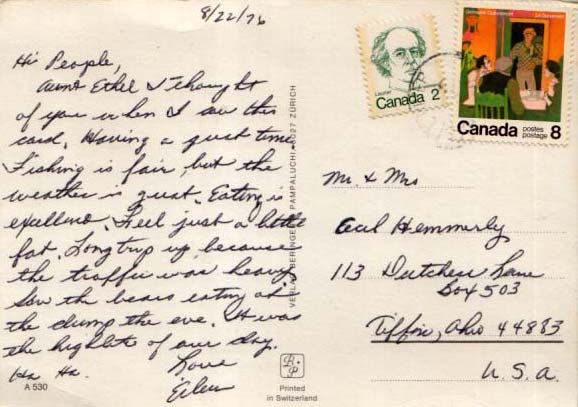 8/22/76
Hi People,
Aunt Ethel I thought
of you when I saw this
card. Having a great time
Fishing is fair, but the
weather is great. Eating is
excellent. Feel just a little
fat. Long trip up because
the traffic was heavy.
Saw the bears eating at
the dump the eve. It was
the highlite of our day.
Ha Ha.
Love
Eileen
A 530
VERLAG BERINGER & PAMPALUCHI, 8027 ZÜRICH
B·P
Printed
in Switzerland
Laurier
Canada 2
Canada postes
postage 8
Mr. & Mrs
Cecil Hemmerly
113 Dutchess Lane
Box 503
Tiffin, Ohio 44883
U.S.A.